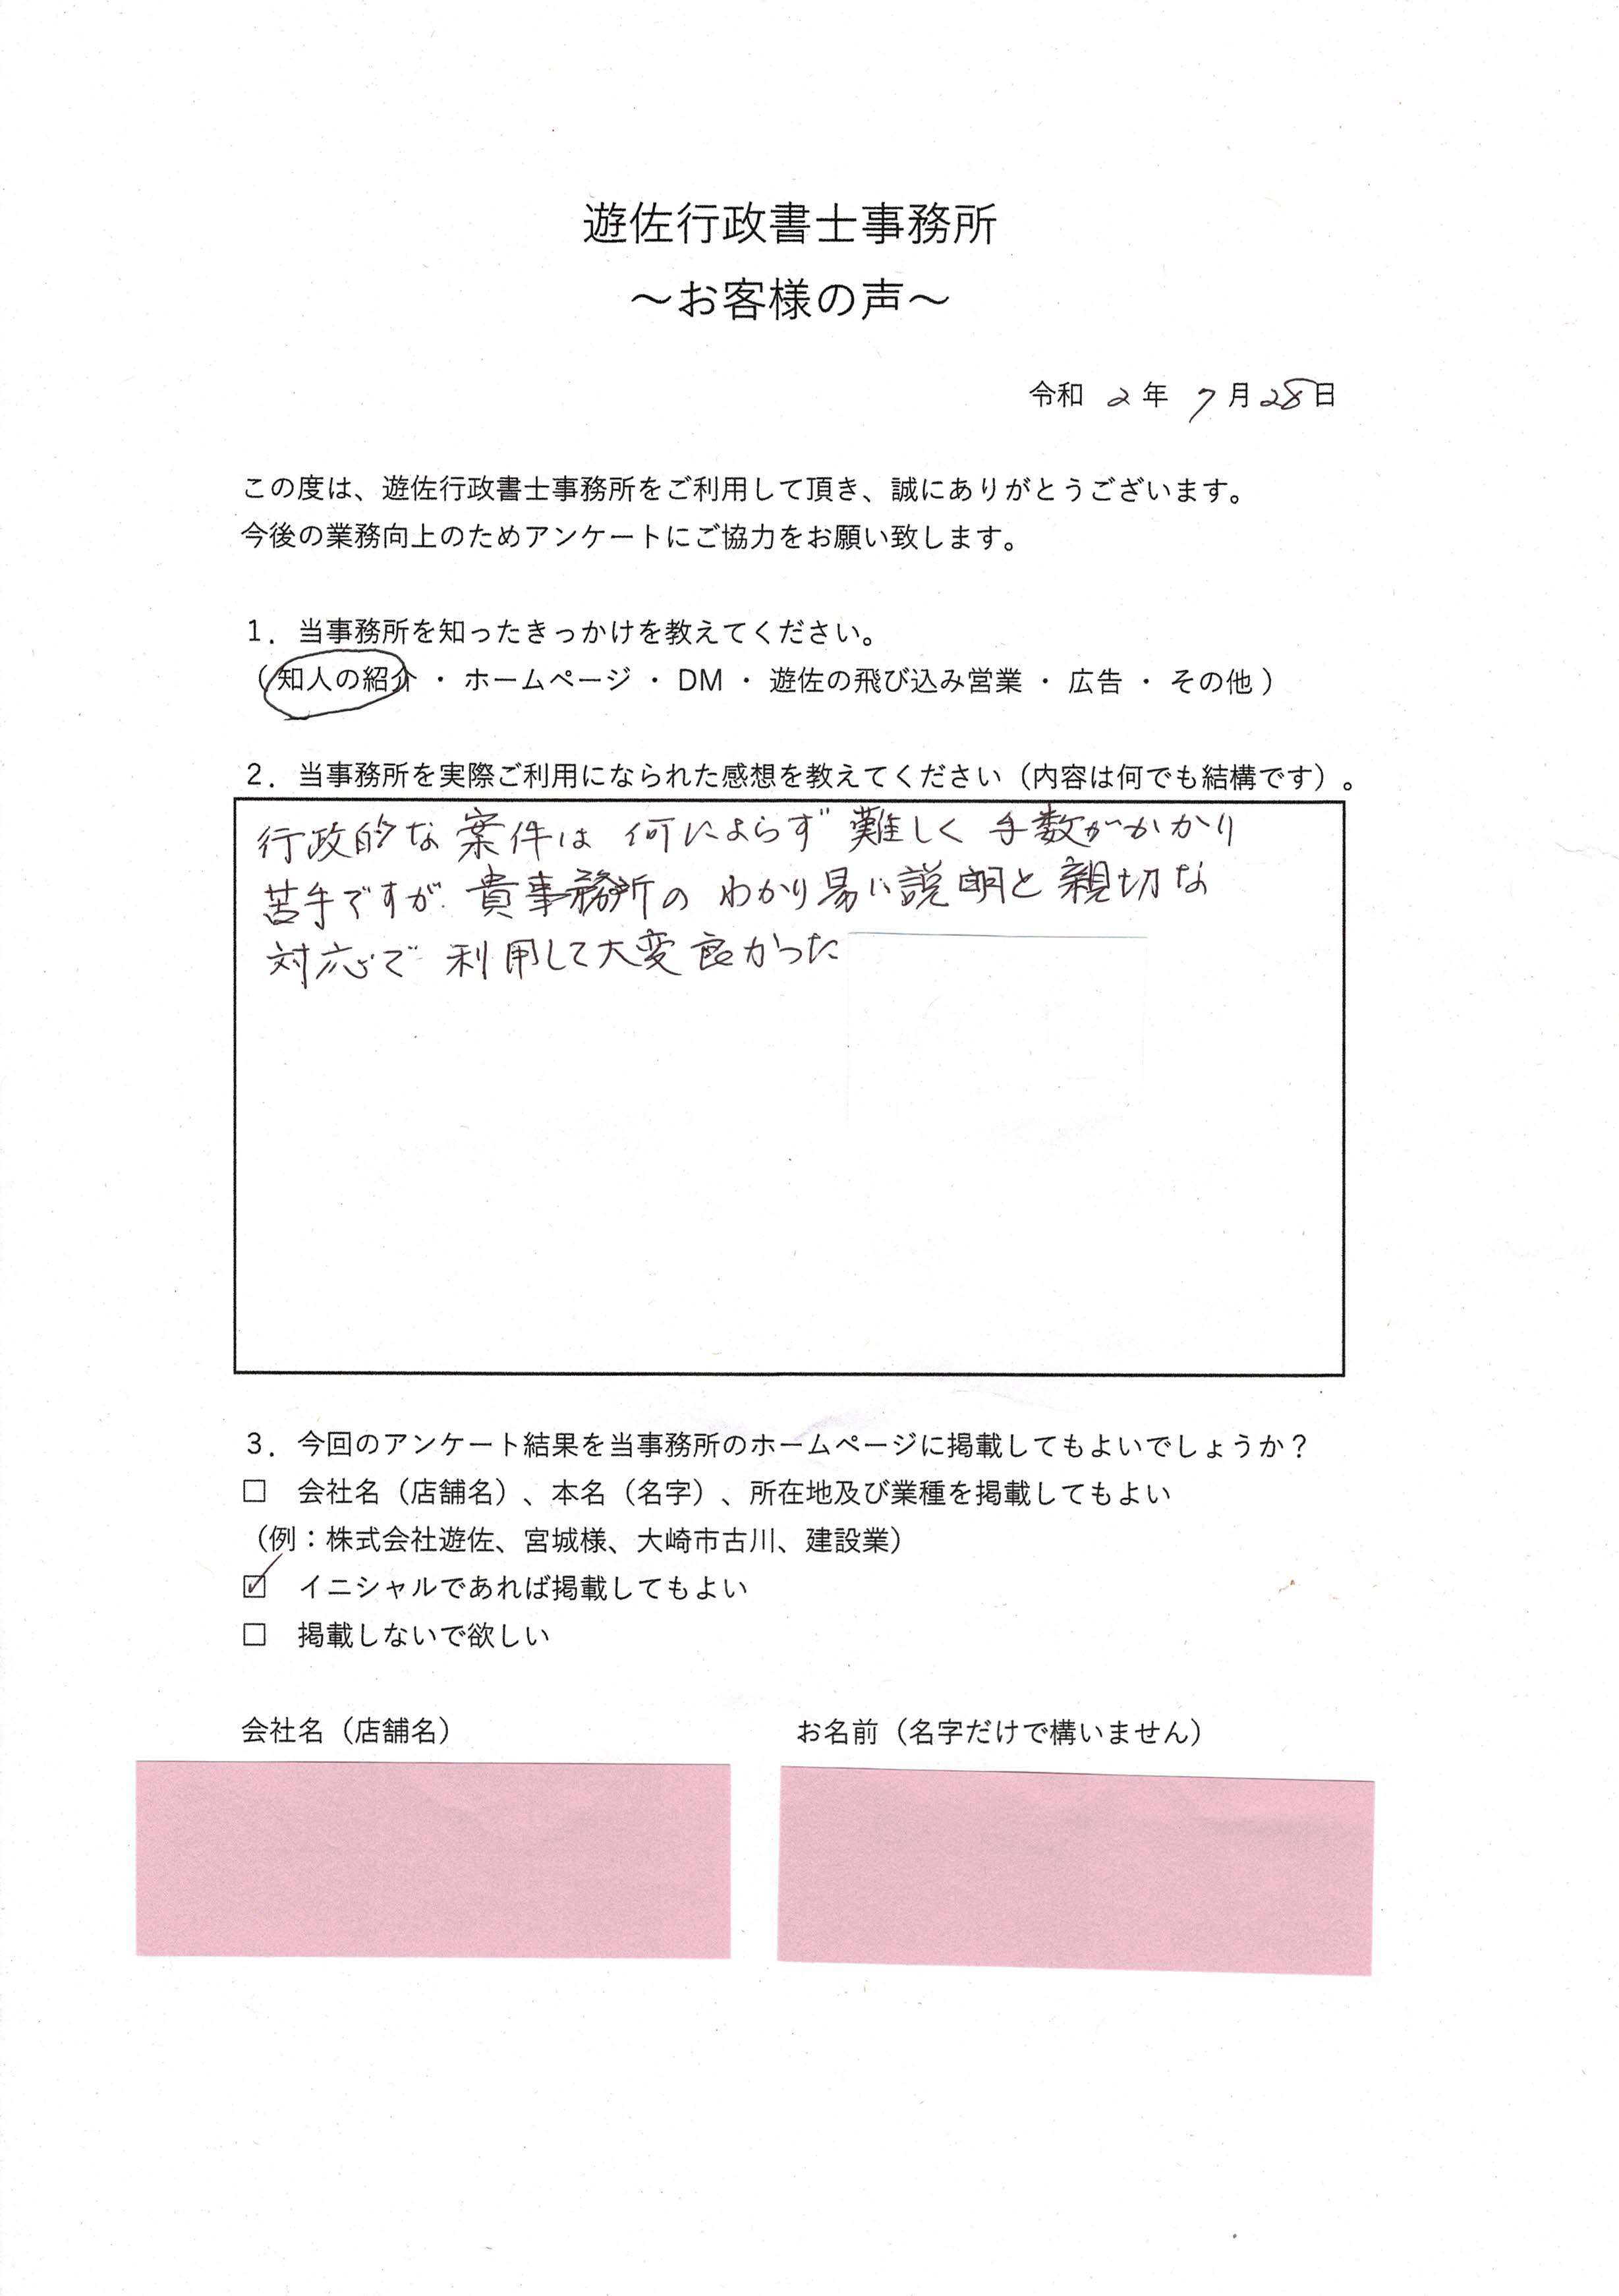 遊佐行政書士事務所
～お客様の声～
令和 2 年 7 月 28 日
この度は、遊佐行政書士事務所をご利用して頂き、誠にありがとうございます。
今後の業務向上のためアンケートにご協力をお願い致します。
1．当事務所を知ったきっかけを教えてください。
（ 知人の紹介 ・ ホームページ ・ DM ・ 遊佐の飛び込み営業 ・ 広告 ・ その他 ）
2．当事務所を実際ご利用になられた感想を教えてください（内容は何でも結構です）。
行政的な案件は 何によらず 難しく 手数がかかり
苦手ですが 貴事務所の わかり易い説明と 親切な
対応で 利用して大変良かった
3．今回のアンケート結果を当事務所のホームページに掲載してもよいでしょうか？
□ 会社名（店舗名）、本名（名字）、所在地及び業種を掲載してもよい
（例：株式会社遊佐、宮城様、大崎市古川、建設業）
☑ イニシャルであれば掲載してもよい
□ 掲載しないで欲しい
会社名（店舗名） お名前（名字だけで構いません）